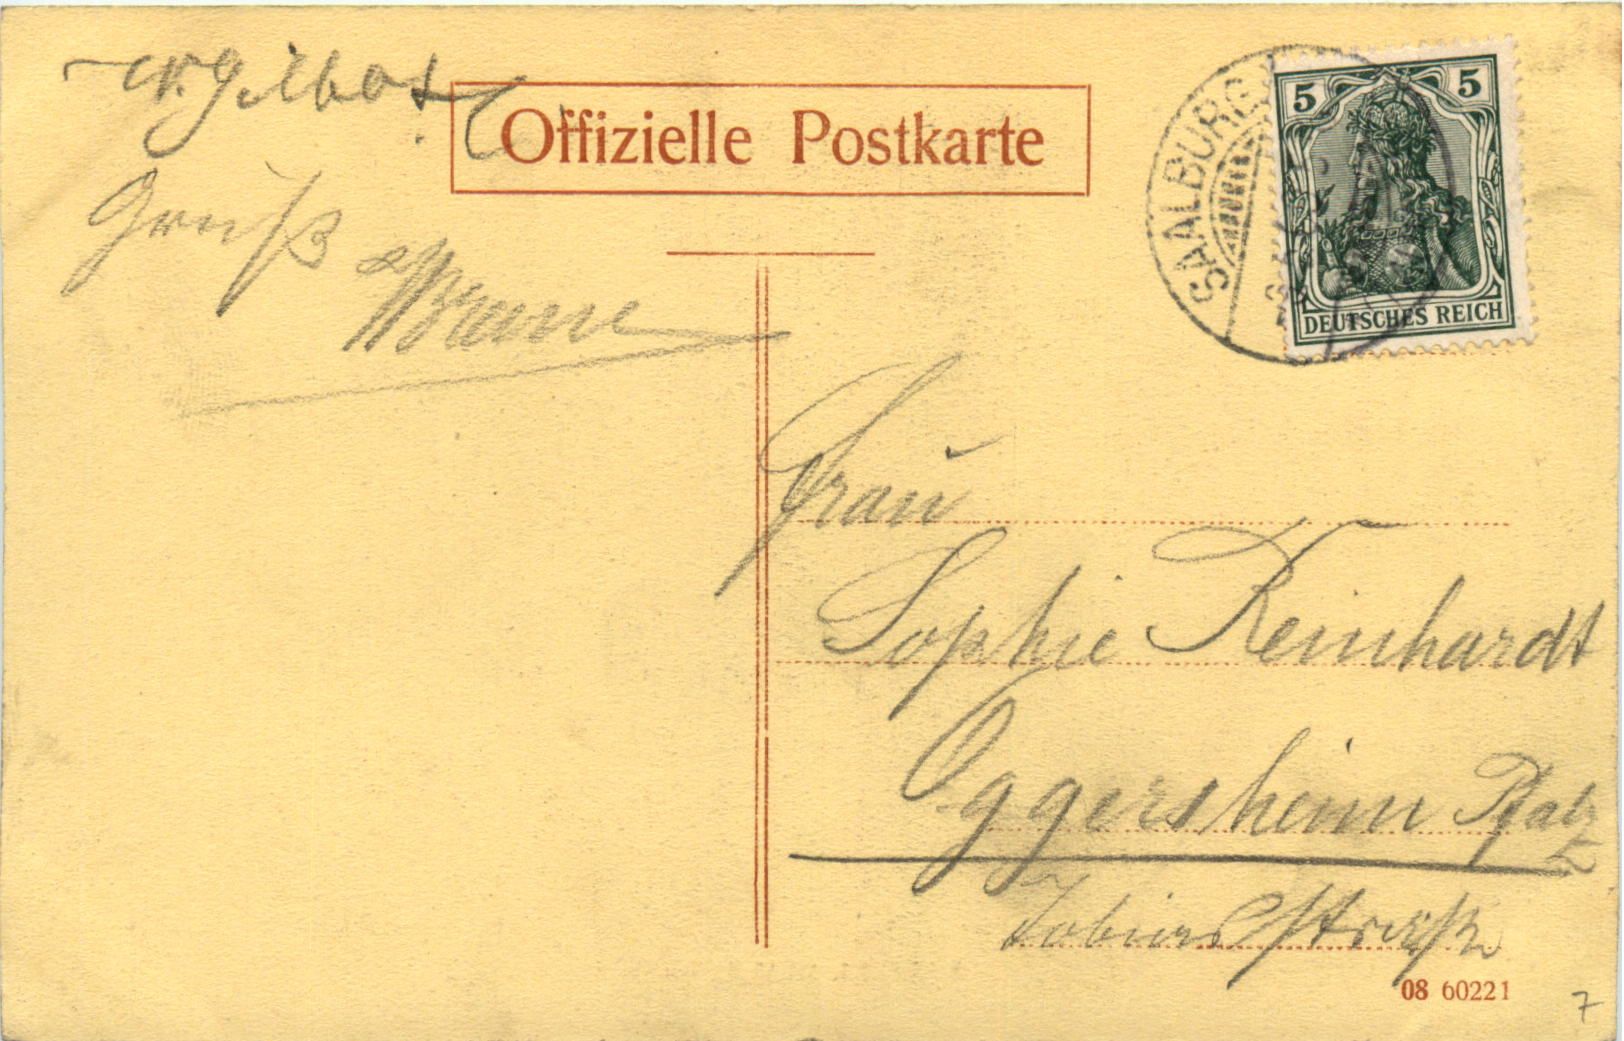 Offizielle Postkarte
Gruß
SAALBURG
5 5
DEUTSCHES REICH
Frau
Sophie Reinhardt
Oggersheim Pfalz
08 60221
7